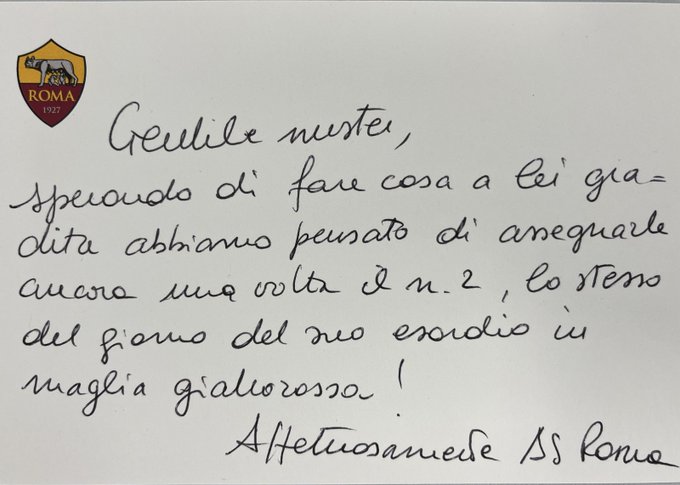 ROMA
1927
Gentile mister,
sperando di fare cosa a lei gra=
dita abbiamo pensato di assegnarle
ancora una volta il n. 2, lo stesso
del giorno del suo esordio in
maglia giallorossa!
Affettuosamente AS Roma